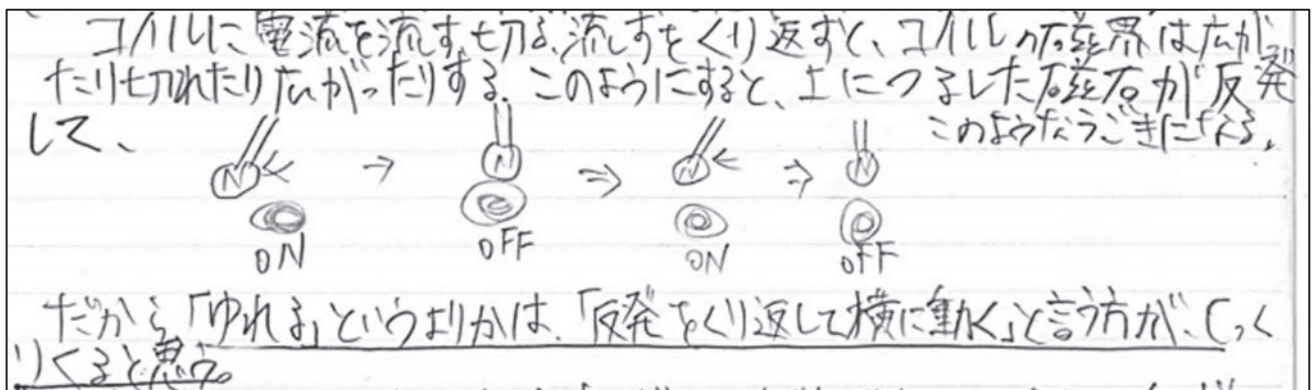 コイルに電流を流す、切る、流すをくり返すと、コイルの磁界は広が
たり切れたり広がったりする。このようにすると、上につるした磁石が反発
して、
このようなうごきになる。
N → N ⇒ N ⇒ N
ON OFF ON OFF
だから「ゆれる」というよりかは、「反発をくり返して横に動く」と言う方が、しっく
りくると思う。